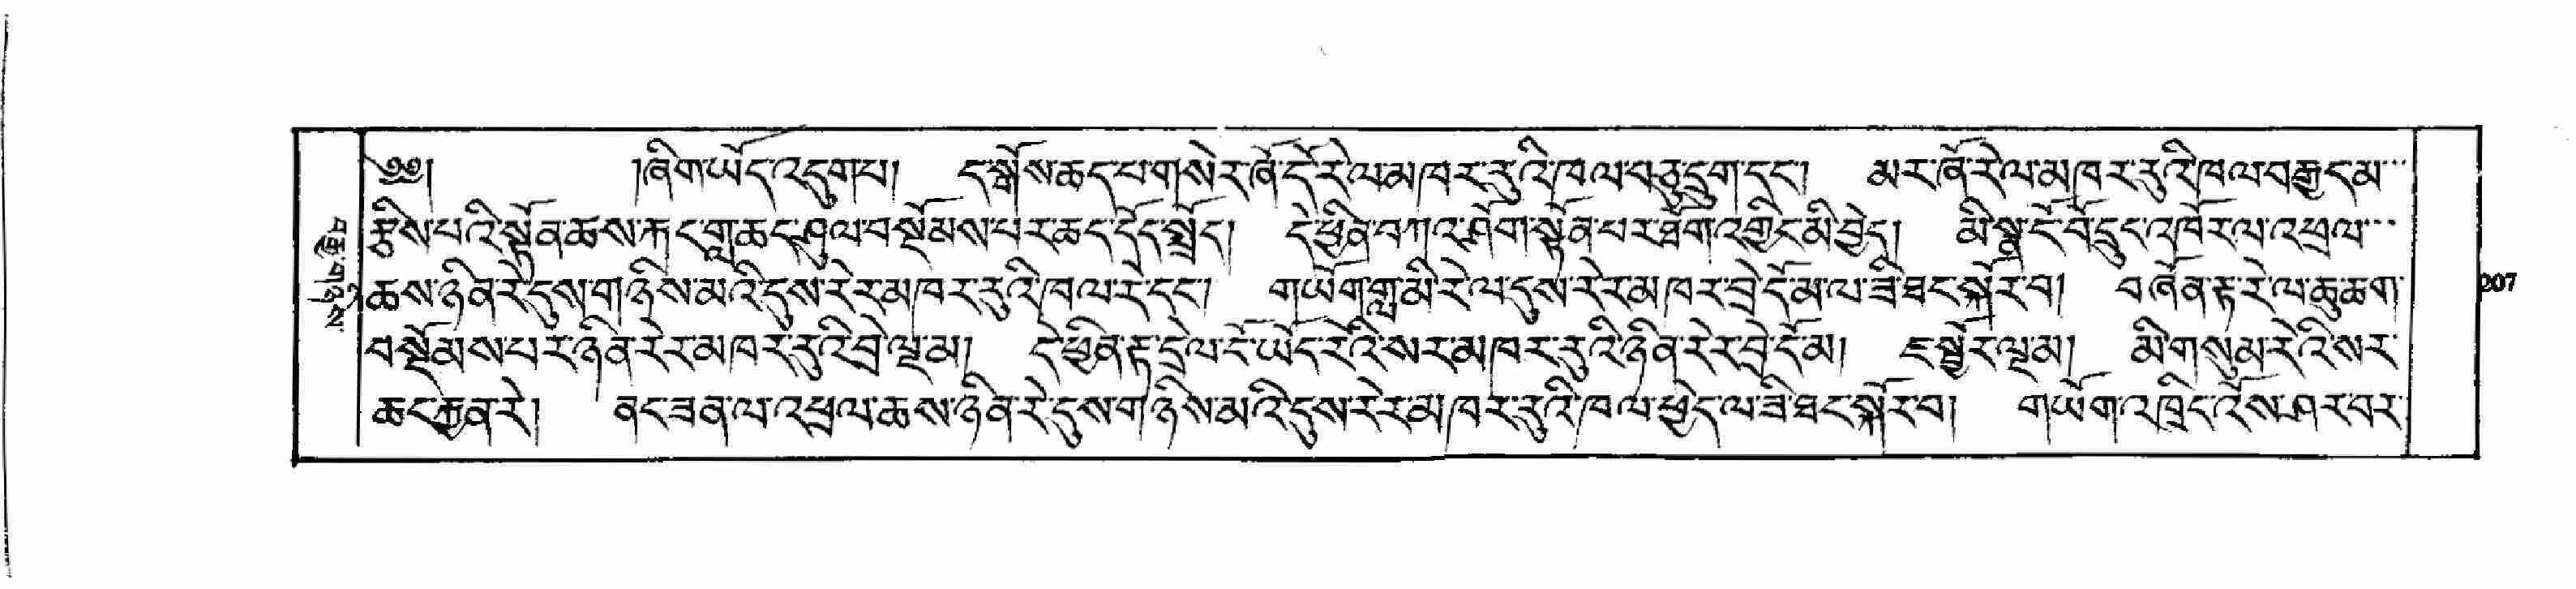 ༄༅། །ཞིག་ཡོད་འདུག་པ། ད་སྒོས་ཆད་པ་གསེར་ཞོ་དོ་རེ་ལ་མཁར་རུའི་ཁལ་བཅུ་དྲུག་དང་། མར་ཞོ་རེ་ལ་མཁར་རུའི་ཁལ་བརྒྱད་མ
རྩིས་པའི་སྟོན་ཆས་རྐང་གླ་ཆང་ཤུལ་བསྡོམས་པར་ཆད་དོད་སྤྲོད། དེ་ཕྱིན་བཀའ་ཤོག་སྟོན་པར་ཐོག་འགྱིང་མི་བྱེད། མི་སྣ་ངོ་བོ་དྲུང་འཁོར་ལ་འཕྲལ
ཆས་ཉིན་རེ་དུས་གཉིས་མའི་དུས་རེར་མཁར་རུའི་ཁལ་རེ་དང་། གཡོག་གླ་མི་རེ་ལ་དུས་རེར་མཁར་བྲེ་དོ་མ་ལ་ཟི་ཐང་སྐོར་བ། བཞོན་རྟ་རེ་ལ་ཆུ་ཆག་
བསྡོམས་པར་ཉིན་རེར་མཁར་རུའི་བྲེ་ལྔ་མ། དེ་ཕྱིན་རྟ་དྲེལ་ངོ་ཡོད་རེའི་སར་མཁར་རུའི་ཉིན་རེར་བྲེ་དོ་མ། ཇ་སྦྱེར་ལྔ་མ། མི་གསུམ་རེའི་སར་
ཆང་རྐྱན་རེ། ནང་ཟན་ལ་འཕྲལ་ཆས་ཉིན་རེ་དུས་གཉིས་མའི་དུས་རེར་མཁར་རུའི་ཁལ་ཕྱེད་ལ་ཟི་ཐང་སྐོར་བ། གཡོག་འཁྲིད་འོས་ཤར་བར་
207